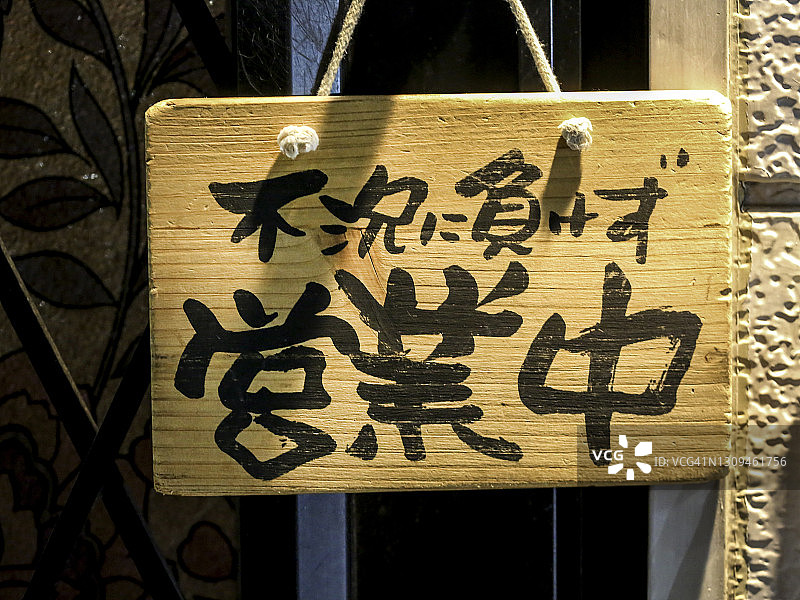 不況に負けず
営業中
VCG
VCG.COM
ID: VCG41N1309461756